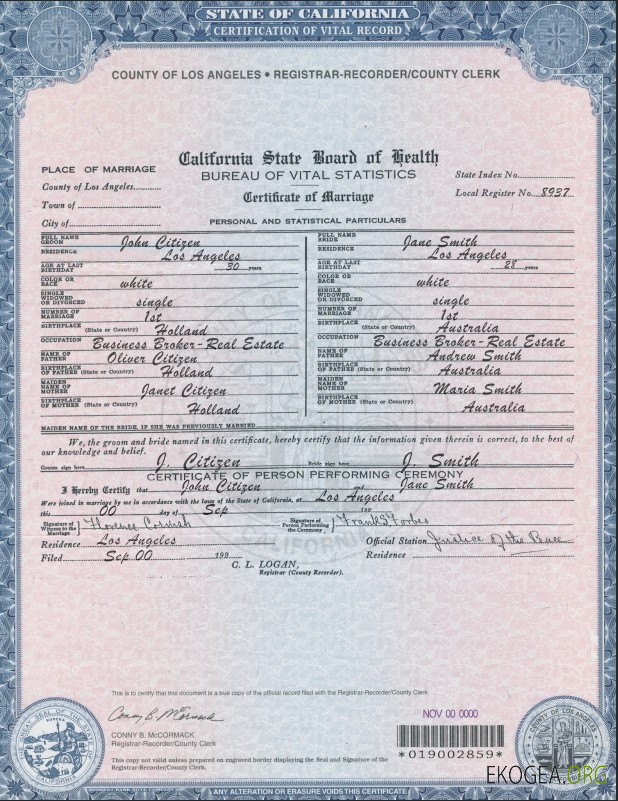 STATE OF CALIFORNIA
CERTIFICATION OF VITAL RECORD
COUNTY OF LOS ANGELES • REGISTRAR-RECORDER/COUNTY CLERK
California State Board of Health
BUREAU OF VITAL STATISTICS
Certificate of Marriage
PLACE OF MARRIAGE
County of Los Angeles
Town of
City of
State Index No.
Local Register No. 8937
PERSONAL AND STATISTICAL PARTICULARS
FULL NAME GROOM John Citizen
RESIDENCE Los Angeles
AGE AT LAST BIRTHDAY 30 years
COLOR OR RACE white
SINGLE WIDOWED OR DIVORCED single
NUMBER OF MARRIAGE 1st
BIRTHPLACE (State or Country) Holland
OCCUPATION Business Broker-Real Estate
NAME OF FATHER Oliver Citizen
BIRTHPLACE OF FATHER (State or Country) Holland
MAIDEN NAME OF MOTHER Janet Citizen
BIRTHPLACE OF MOTHER (State or Country) Holland
FULL NAME BRIDE Jane Smith
RESIDENCE Los Angeles
AGE AT LAST BIRTHDAY 28 years
COLOR OR RACE white
SINGLE WIDOWED OR DIVORCED single
NUMBER OF MARRIAGE 1st
BIRTHPLACE (State or Country) Australia
OCCUPATION Business Broker-Real Estate
NAME OF FATHER Andrew Smith
BIRTHPLACE OF FATHER (State or Country) Australia
MAIDEN NAME OF MOTHER Maria Smith
BIRTHPLACE OF MOTHER (State or Country) Australia
MAIDEN NAME OF THE BRIDE, IF SHE WAS PREVIOUSLY MARRIED
We, the groom and bride named in this certificate, hereby certify that the information given therein is correct, to the best of
our knowledge and belief.
Groom sign here J. Citizen Bride sign here J. Smith
CERTIFICATE OF PERSON PERFORMING CEREMONY
I Hereby Certify that John Citizen and Jane Smith
Were joined in marriage by me in accordance with the laws of the State of California, at Los Angeles
this 00 day of Sep 192
Signature of Witness to the Marriage Florence
Signature of Person Performing the Ceremony Frank S Forbes
Residence Los Angeles
Official Station Justice of the Peace
Filed Sep 00 192
Residence
C. L. LOGAN,
Registrar (County Recorder).
This is to certify that this document is a true copy of the official record filed with the Registrar-Recorder/County Clerk
Conny B. McCormack
CONNY B. McCORMACK
Registrar-Recorder/County Clerk
NOV 00 0000
*019002859*
This copy not valid unless prepared on engraved border displaying the Seal and Signature of the
Registrar-Recorder/County Clerk.
COUNTY OF LOS ANGELES
CALIFORNIA
EUREKA
EKOGEA.ORG
ANY ALTERATION OR ERASURE VOIDS THIS CERTIFICATE